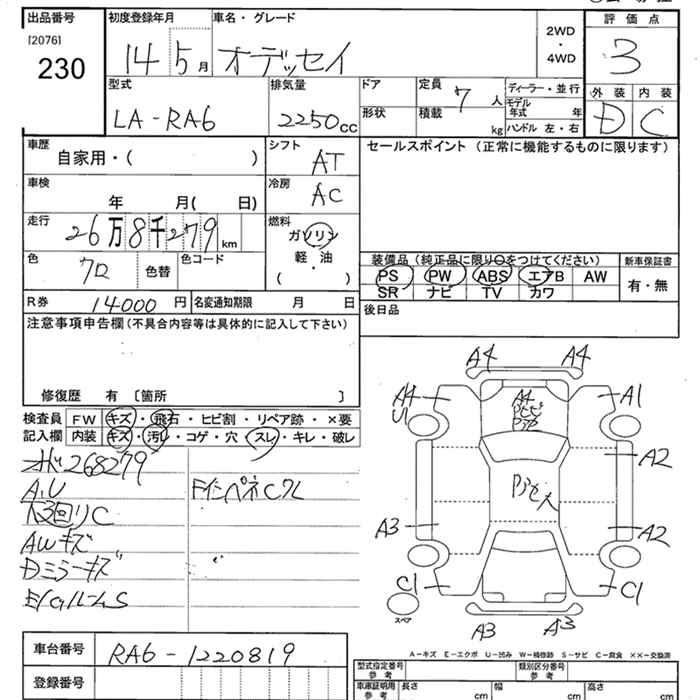 出品番号 初度登録年月 車名・グレード 2WD・4WD 評価点
[2076]
230 14 5月 オデッセイ 3
型式 排気量 ドア 定員 ディーラー・並行 外装 内装
LA-RA6 2250cc 形状 7人 モデル年式 年 D C
積載 kg ハンドル 左・右
車歴 シフト セールスポイント (正常に機能するものに限ります)
自家用・( ) AT
車検 冷房
年 月( 日) AC
走行 燃料
26万8千279km ガソリン
色 色替 色コード 軽・油 装備品 (純正品に限り○をつけてください) 新車保証書
クロ ( ・ ) PS PW ABS エアB AW 有・無
R券 14000円 名変通知期限 月 日 SR ナビ TV カワ
注意事項申告欄 (不具合内容等は具体的に記入して下さい) 後日品
修復歴 有 [箇所 ]
検査員 FW キズ・飛石・ヒビ割・リペア跡・×要
記入欄 内装 キズ・汚レ・コゲ・穴・スレ・キレ・破レ
268279
A,U
C
AWキズ
Dミラーキズ
A4 A4
A4 A4 A1
U1
A2
A3 A2
C1 C1
スペア
A3 A3
A-キズ E-エクボ U-凹み W-補修跡 S-サビ C-腐食 ××-交換済
車台番号 RA6-1220819
型式指定番号 参考 類別区分番号 参考
登録番号 車庫証明用 参考 長さ cm 幅 cm 高さ cm